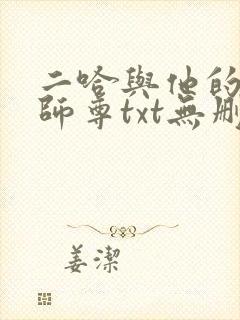 二哈與他的
師尊txt無刪
姜潔